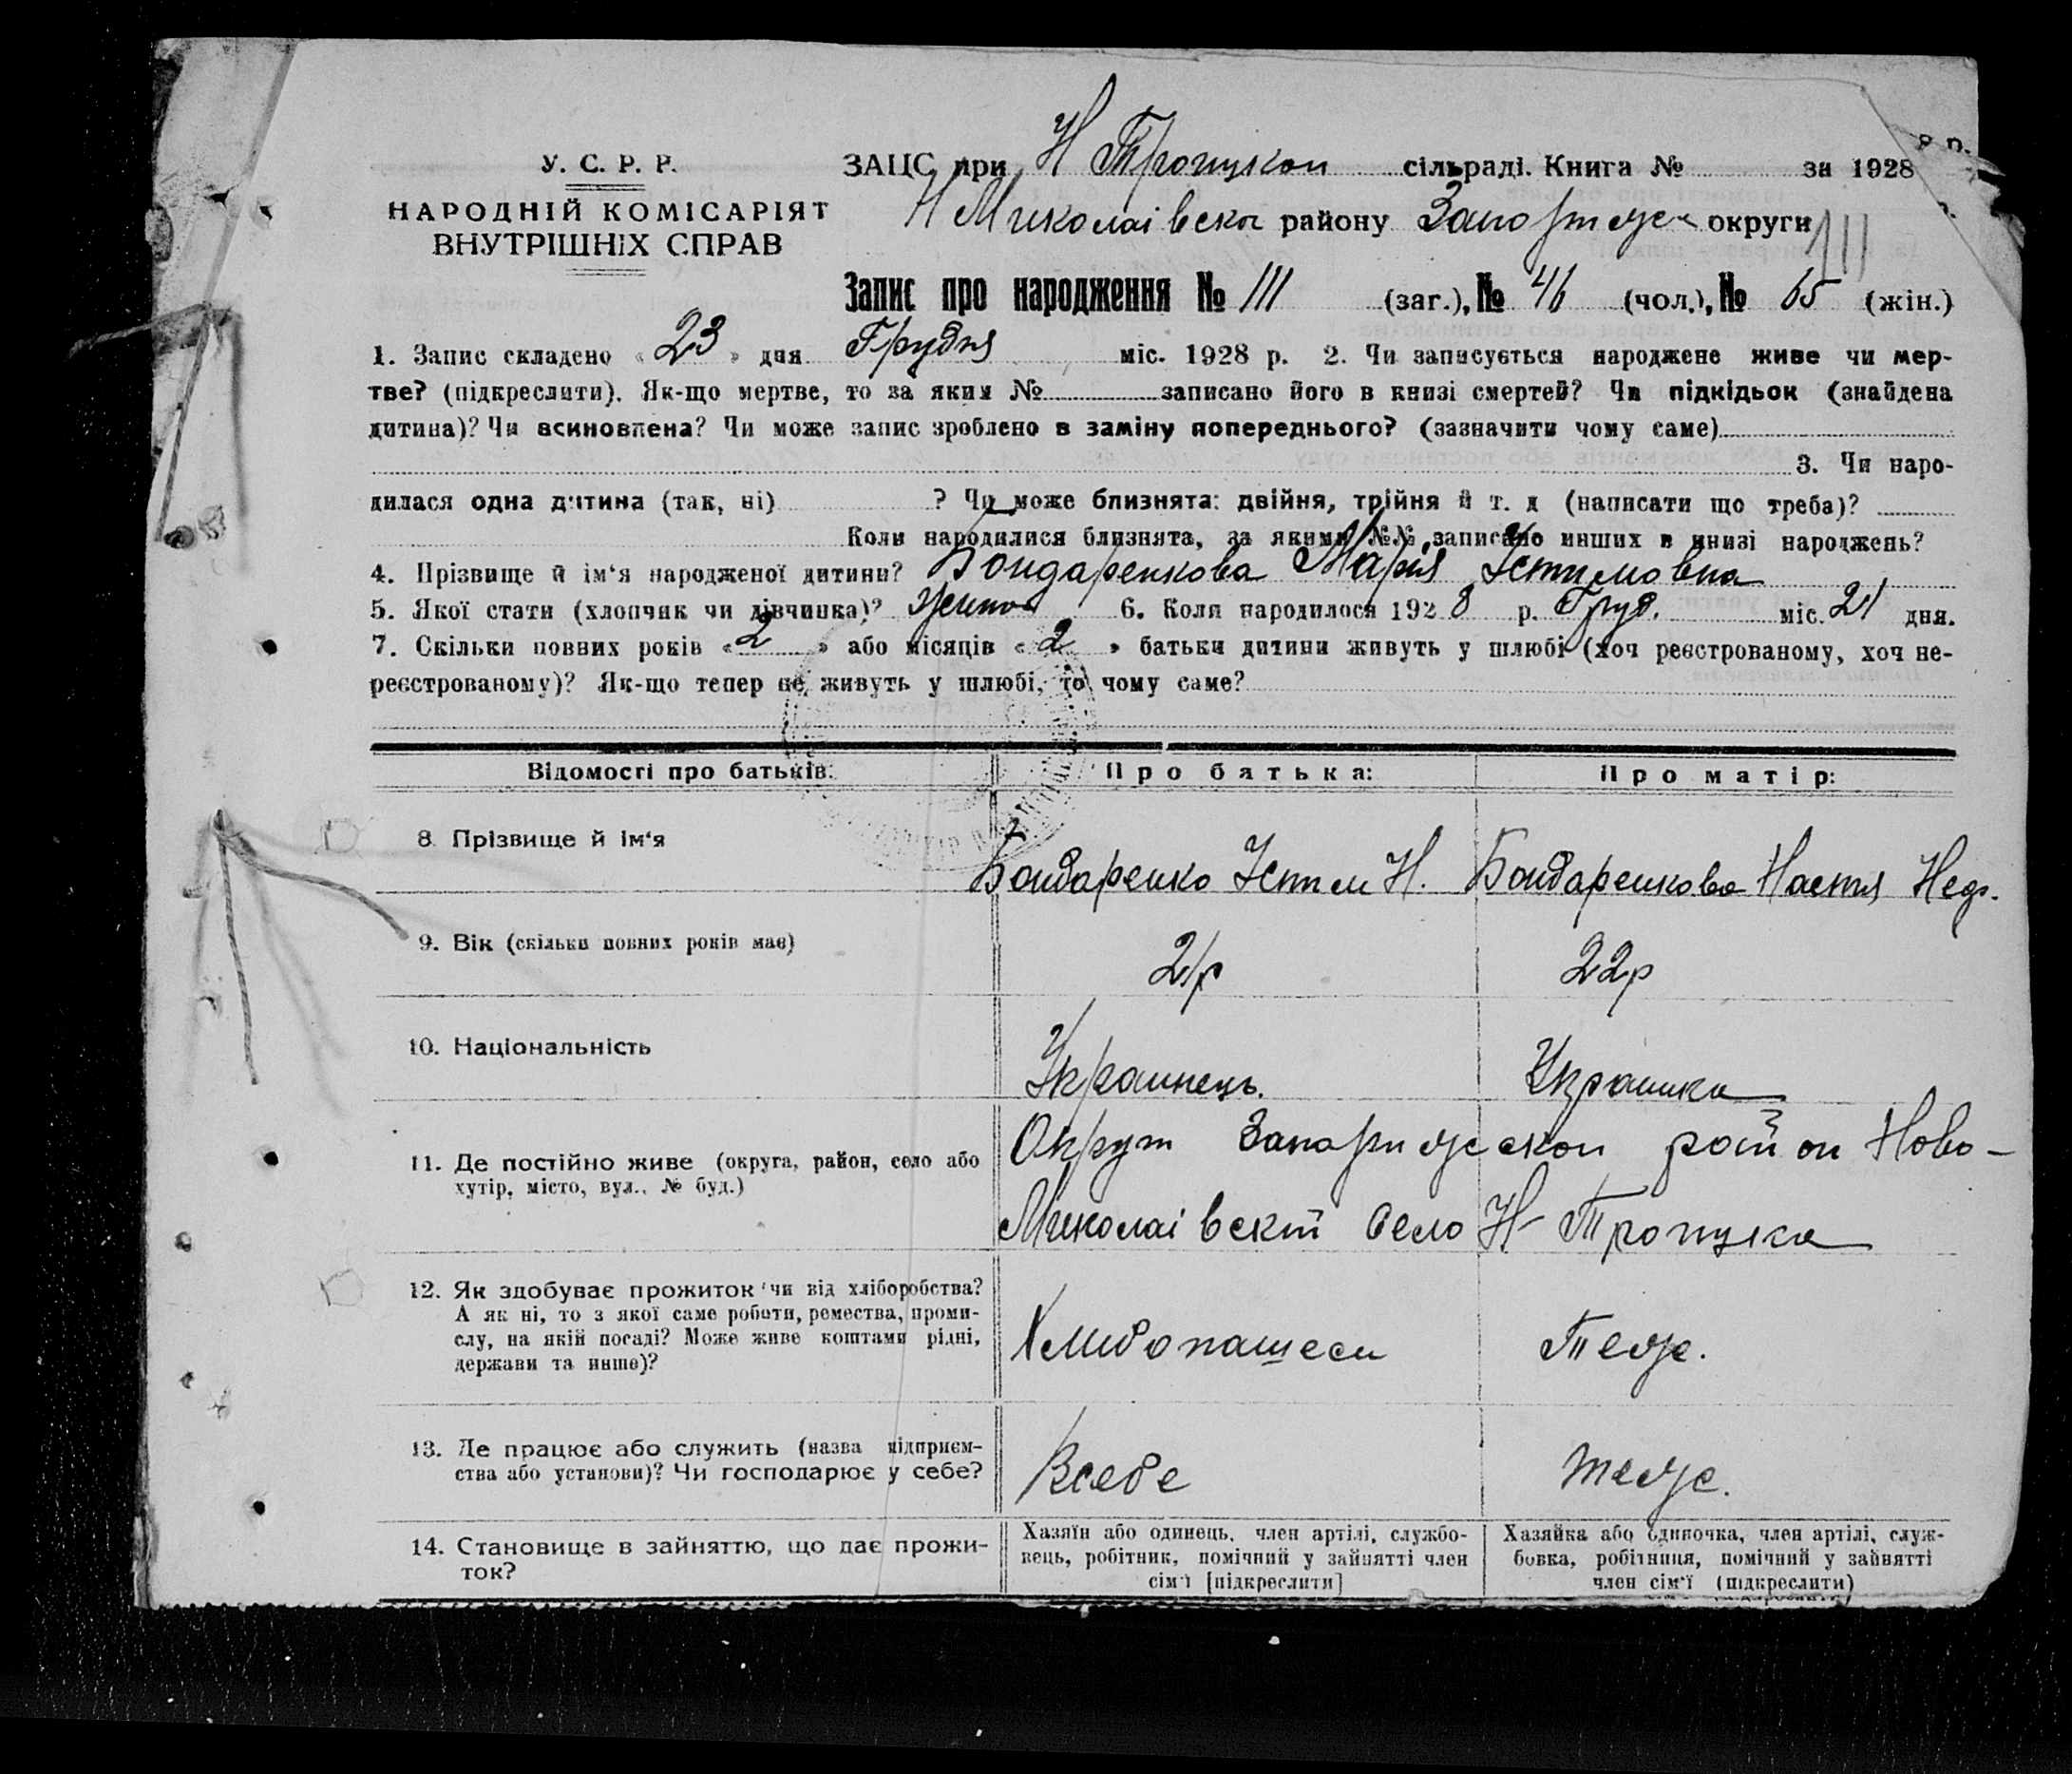 У. С. Р. Р.
НАРОДНІЙ КОМІСАРІЯТ
ВНУТРІШНІХ СПРАВ
ЗАЦС при Н Троицкои сільраді. Книга № за 1928
Н Миколаівска району Запорижс округи
111
Запис про народження № 111 (заг.), № 46 (чол.), № 65 (жін.)
1. Запис складено « 23 » дня Грудня міс. 1928 р. 2. Чи записується народжене живе чи мер-
тве? (підкреслити). Як-що мертве, то за яким № записано його в книзі смертей? Чи підкідьок (знайдена
дитина)? Чи всиновлена? Чи може запис зроблено в заміну попереднього? (зазначити чому саме)
3. Чи наро-
дилася одна дитина (так, ні) ? Чи може близнята: двійня, трійня й т. д (написати що треба)?
Коли народилися близнята, за якими №№ записано инших в книзі народжень?
4. Прізвище й ім‘я народженої дитини? Бондаренкова Марія Устимовна
5. Якої стати (хлопчик чи дівчинка)? 6. Коли народилося 1928 р. Груд. міс. 21 дня.
7. Скільки повних років « 2 » або місяців « 2 » батьки дитини живуть у шлюбі (хоч реєстрованому, хоч не-
реєстрованому)? Як-що тепер не живуть у шлюбі, то чому саме?
Відомості про батьків: Про батька: Про матір:
8. Прізвище й ім‘я
Бондаренко Устим Н. Бондаренкова Настя
9. Вік (скільки повних років має)
21р 22р
10. Національність
Украинець. Украинка
11. Де постійно живе (округа, район, село або
хутір, місто, вул., № буд.)
Округи Запорижскои район Ново-
Миколаівский село Н-Троицка
12. Як здобуває прожиток чи від хліборобства?
А як ні, то з якої саме роботи, ремества, проми-
слу, на якій посаді? Може живе коштами рідні,
держави та инше)?
Хлибопашеси Теже.
13. Де працює або служить (назва підприєм-
ства або установи)? Чи господарює у себе?
Всебе теже.
14. Становище в зайняттю, що дає прожи-
ток?
Хазяїн або одинець, член артілі, службо-
вець, робітник, помічний у зайнятті член
сім‘ї [підкреслити]
Хазяйка або одиночка, член артілі, служ-
бовка, робітниця, помічний у зайнятті
член сім‘ї (підкреслити)